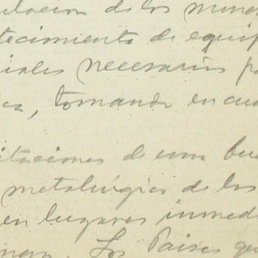 ulacion de los mine
tecimiento de equip
iales necesarios pa
es, tomando en cue
itaciones de una bue
metalúrgica de los
en lugares inmedi
Los Paises que